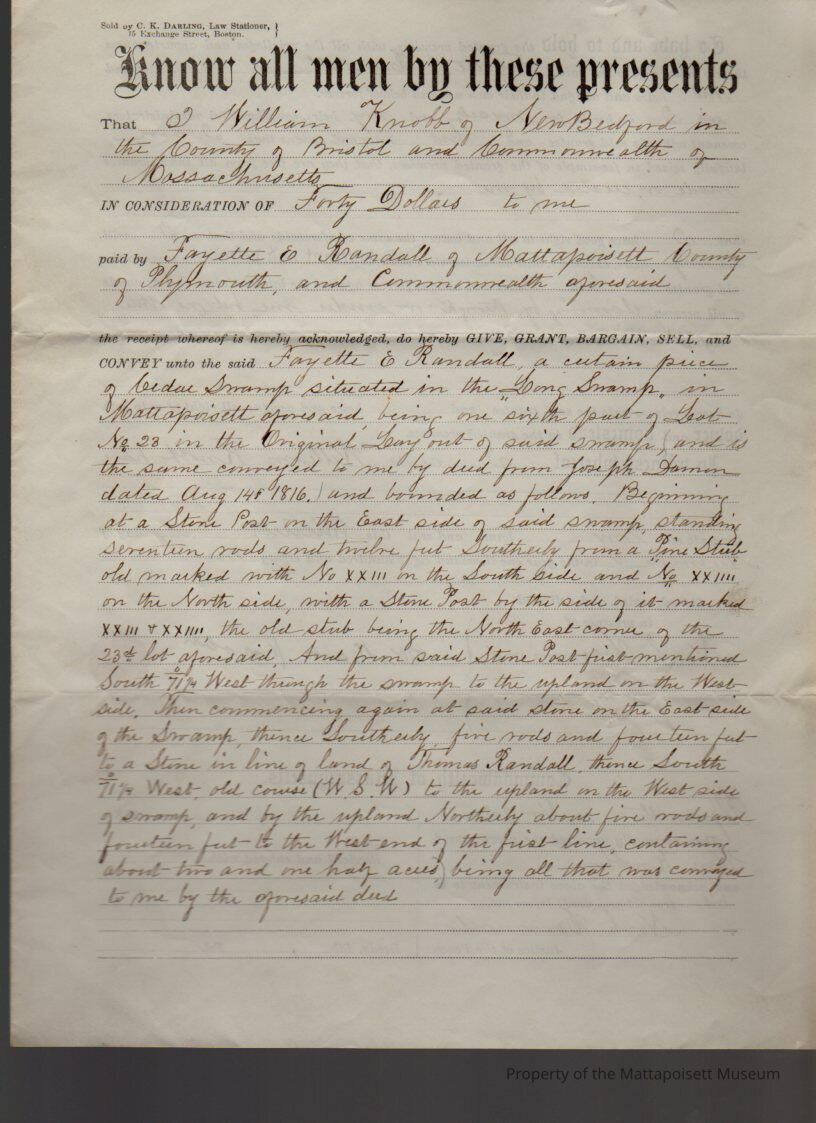 Sold by C. K. DARLING, Law Stationer, }
15 Exchange Street, Boston.
Know all men by these presents
That I William Knobb of New Bedford in
the County of Bristol and Commonwealth of
Massachusetts
IN CONSIDERATION OF Forty Dollars to me
paid by Fayette E Randall of Mattapoisett County
of Plymouth, and Commonwealth aforesaid
the receipt whereof is hereby acknowledged, do hereby GIVE, GRANT, BARGAIN, SELL, and
CONVEY unto the said Fayette E Randall, a certain piece
of Cedar Swamp situated in the "Long Swamp" in
Mattapoisett aforesaid, being one sixth part of Lot
No 23 in the Original Lay out of said swamp, and is
the same conveyed to me by deed from Joseph Damon
dated Aug 14th 1816,) and bounded as follows. Beginning
at a Stone Post on the East side of said swamp, standing
seventeen rods and twelve feet Southerly from a Pine Stub
old marked with No XXIII on the South side and No XXIIII
on the North side, with a Stone Post by the side of it marked
XXIII & XXIIII, the old stub being the North East corner of the
23d lot aforesaid, And from said Stone Post first mentioned
South 71¼ West through the swamp to the upland on the West
side, Then commencing again at said stone on the East side
of the Swamp, thence Southerly, five rods and fourteen feet
to a Stone in line of land of Thomas Randall, thence South
71¼ West, old course (W. S. W) to the upland on the West side
of swamp, and by the upland Northerly about five rods and
fourteen feet to the West end of the first line, containing
about two and one half acres,) being all that was conveyed
to me by the aforesaid deed
Property of the Mattapoisett Museum